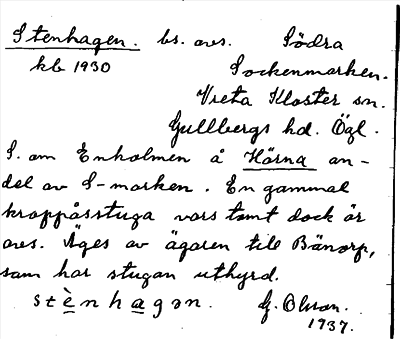 Stenhagen. bs. avs. Södra
kb 1930 Sockenmarken.
Vreta Kloster sn.
Gullbergs hd. Ögl.
S. om Enholmen å Hörna an-
del av S-marken. En gammal
kroppåsstuga vars tomt dock är
avs. Äges av ägaren till Bänorp,
som har stugan uthyrd.
stènhagən. G. Olson.
1937.